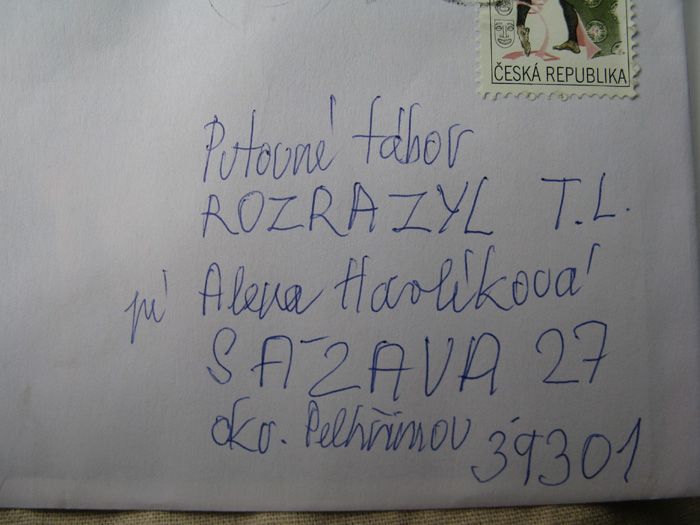 ČESKÁ REPUBLIKA
Putovné tábor
ROZRAZYL T.L.
pí Alena Havlíková
SÁZAVA 27
okr. Pelhřimov 39301